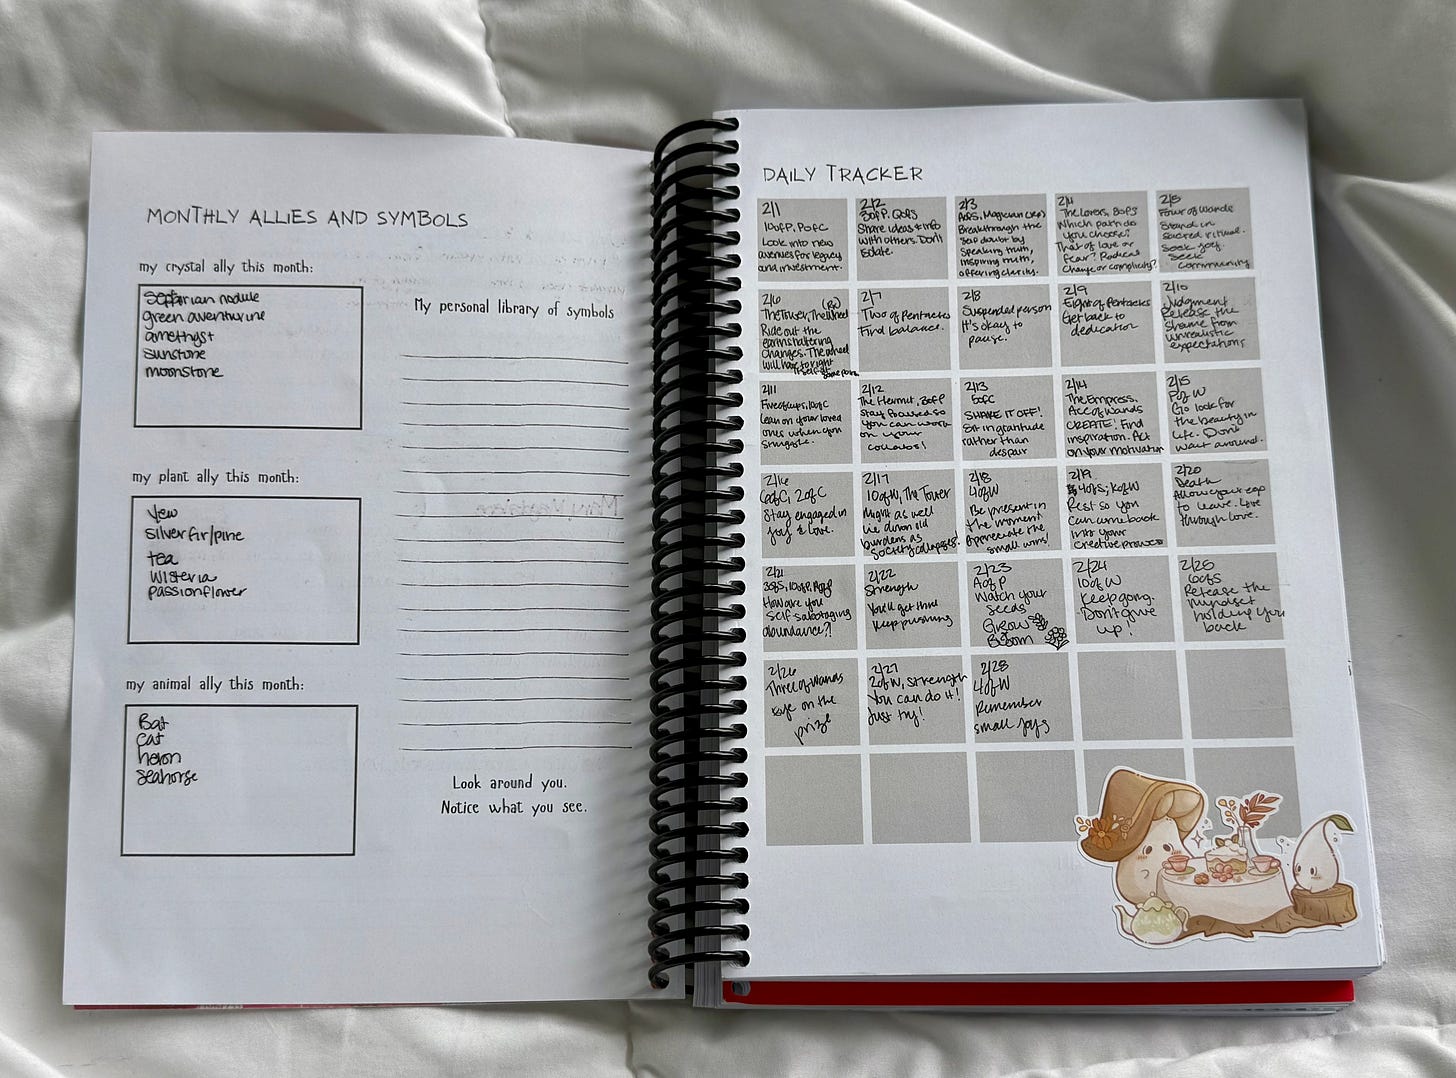 MONTHLY ALLIES AND SYMBOLS
my crystal ally this month:
septarian nodule
green aventurine
amethyst
sunstone
moonstone
my plant ally this month:
Yew
silver fir/pine
tea
wisteria
passionflower
my animal ally this month:
Bat
cat
heron
seahorse
My personal library of symbols
Look around you.
Notice what you see.
DAILY TRACKER
2/1
10ofP, PofC
Look into new
avenues for legacy
and investment.
2/2
3ofP, QofS
Share ideas & info
with others. Don't
2/3
AofS, Magician
Breakthrough the
self doubt by
speaking truth,
inspiring truth,
offering clarity.
2/4
The Lovers, 8ofS
Which path do
you choose?
That of love or
fear? Radical
change or complicity?
2/5
Four of Wands
Stand in
sacred ritual.
Seek joy.
Seek
community
2/6
The Tower, The Wheel (RV)
Ride out the
earthshattering
changes. The wheel
will have to right
itself at some point
2/7
Two of Pentacles
Find balance.
2/8
Suspended person
It's okay to
pause.
2/9
Eight of Pentacles
Get back to
dedication
2/10
Judgment
Release the
shame from
unrealistic
expectations
2/11
Five of cups, 10ofC
Lean on your loved
ones when you
struggle.
2/12
The Hermit, 3ofP
Stay focused so
you can work
on your
collabs!
2/13
5ofC
SHAKE IT OFF!
Sit in gratitude
rather than
despair
2/14
The Empress,
Ace of Wands
CREATE! Find
inspiration. Act
on your motivation
2/15
PofW
Go look for
the beauty in
life. Don't
wait around.
2/16
6ofC, 2ofC
Stay engaged in
joy & love.
2/17
10ofW, The Tower
Might as well
lie down old
burdens as
society collapses!
2/18
4ofW
Be present in
the moment
Appreciate the
small wins!
2/19
4ofS, KofW
Rest so you
can come back
into your
creative prowess
2/20
Death
Allow your ego
to leave. Live
through love.
2/21
How are you
self sabotaging
abundance?!
2/22
Strength
You'll get thru
Keep pushing
2/23
AofP
Watch your
seeds
Grow
Bloom
2/24
10ofW
Keep going.
Don't give
up!
2/25
Release the
mindset
holding you
back
2/26
Three of Wands
Eye on the
prize
2/27
2ofW, Strength
You can do it!
Just try!
2/28
4ofW
Remember
small joys